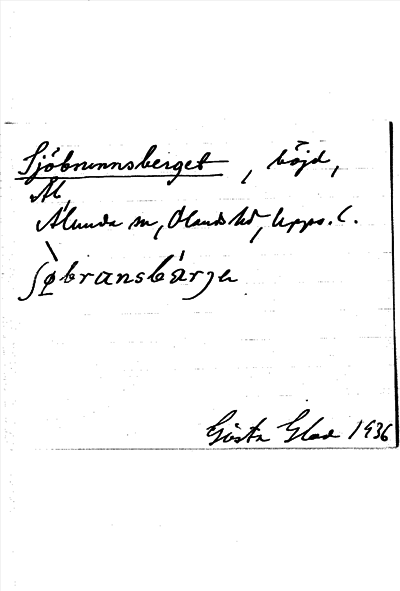 Sjöbrunnsberget, höjd,
Ål,
Alunda sn, Olands hd, Upps. l.
ʃø̀bransbárjə
Gösta Glad 1936